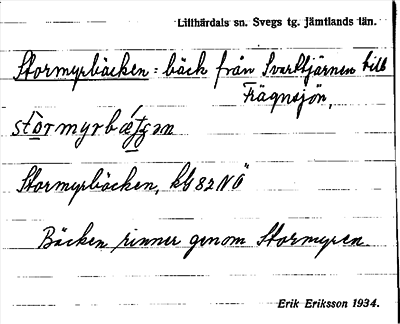 Lillhärdals sn. Svegs tg. jämtlands län.
Stormyrbäcken = bäck från Svarttjärnen till
Frägnsjön,
Stormyrbäcken, kG 82 NÖ
Bäcken rinner genom Stormyren.
Erik Eriksson 1934.